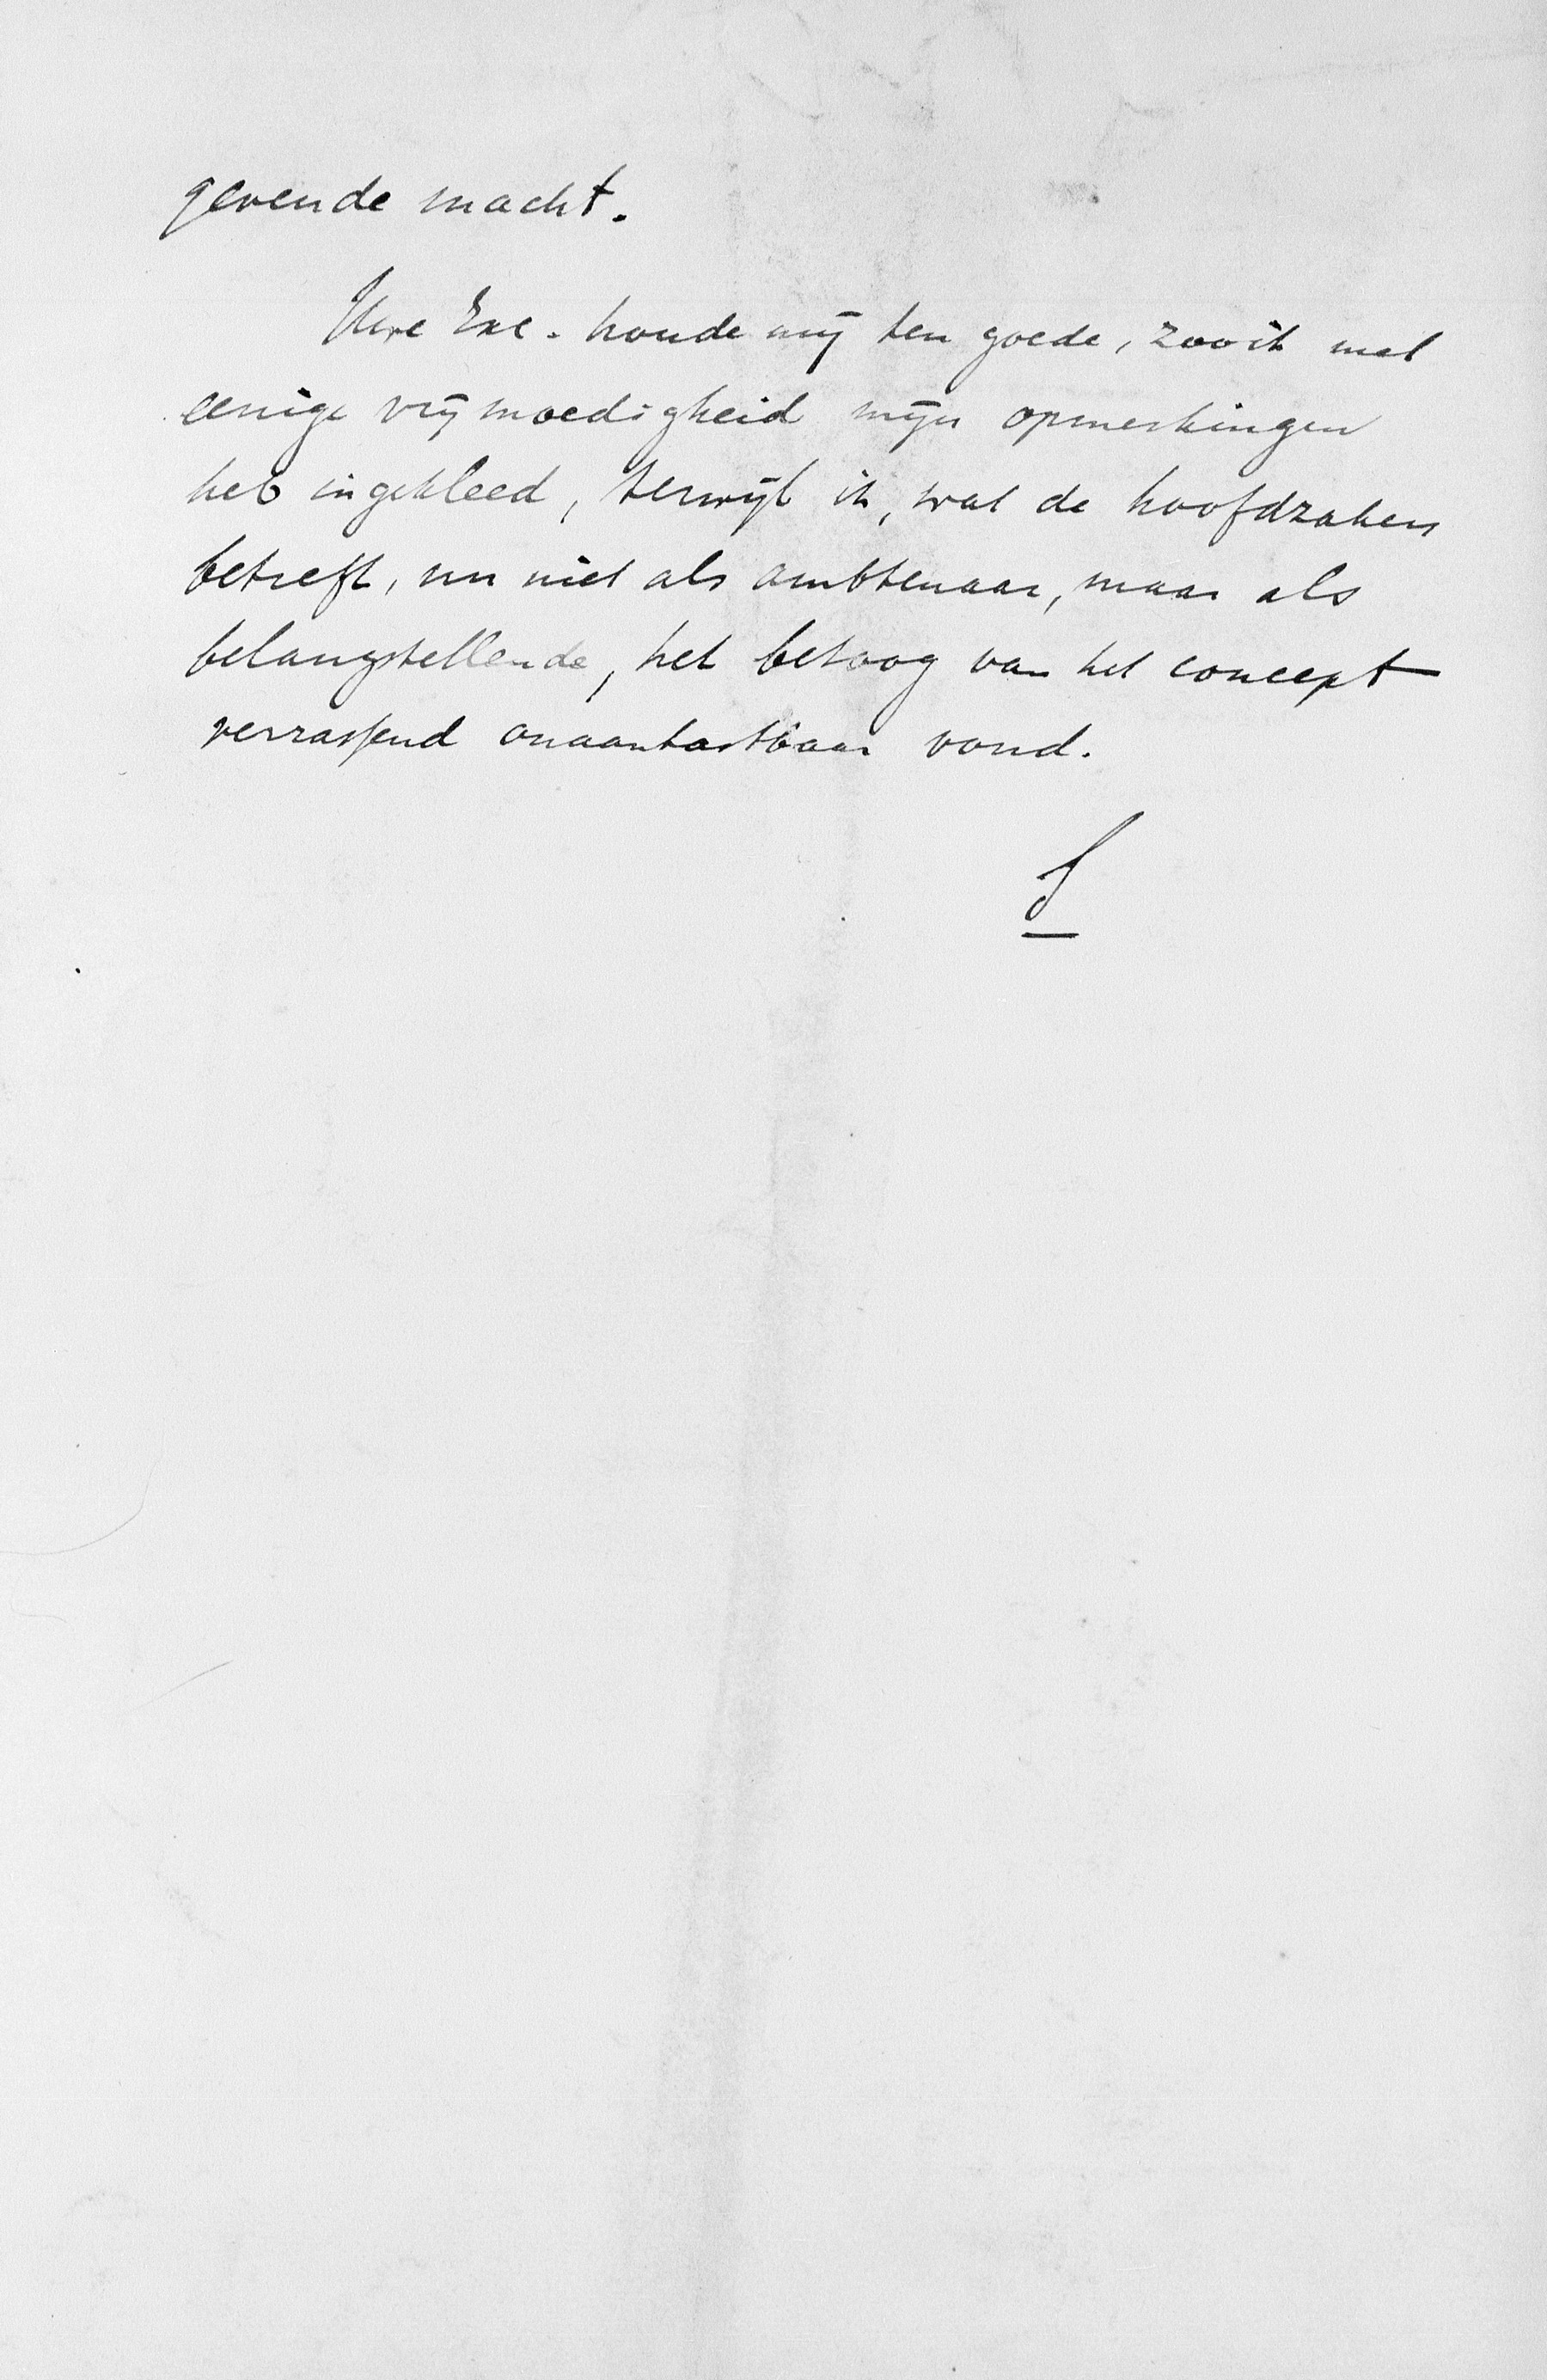 gevende macht.
Uwe Exc. houde mij ten goede, zoo ik met
eenige vrijmoedigheid mijn opmerkingen
heb ingekleed, terwijl ik, wat de hoofdzaken
betreft, nu niet als ambtenaar, maar als
belangstellende, het betoog van het concept
verrassend onaantastbaar vond.